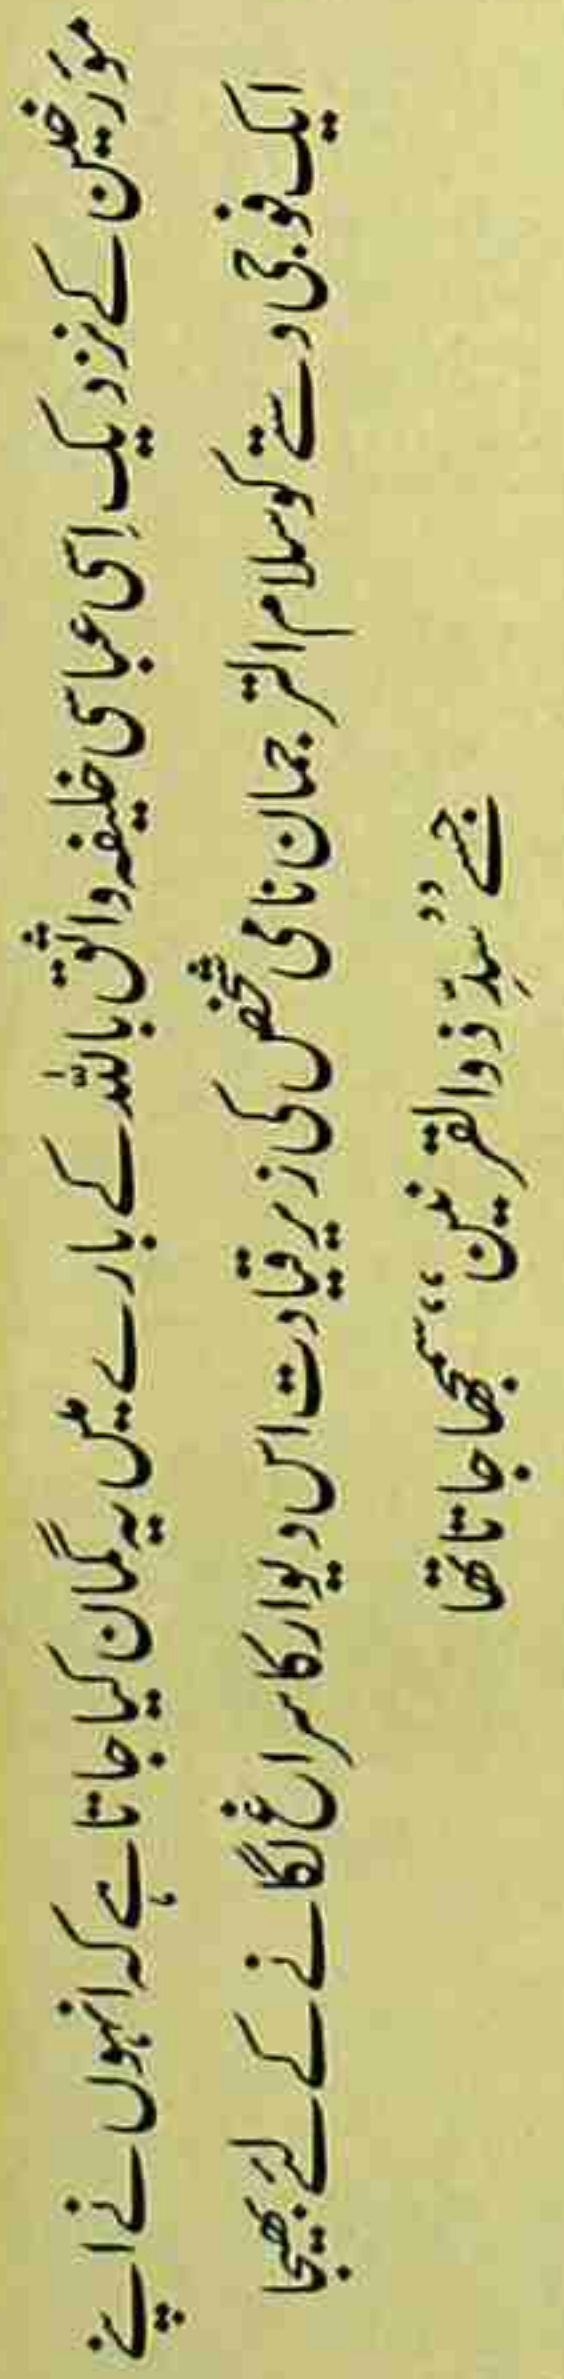 مؤرخین کے نزدیک اِسی عباسی خلیفہ واثق باللہ کے بارے میں یہ گمان کیا جاتا ہے کہ انہوں نے اپنے
ایک فوجی دستے کو سلام الترجمان نامی شخص کی زیر قیادت اس دیوار کا سراغ لگانے کے لئے بھیجا
جسے ”سدِّ ذوالقرنین“ سمجھا جاتا تھا